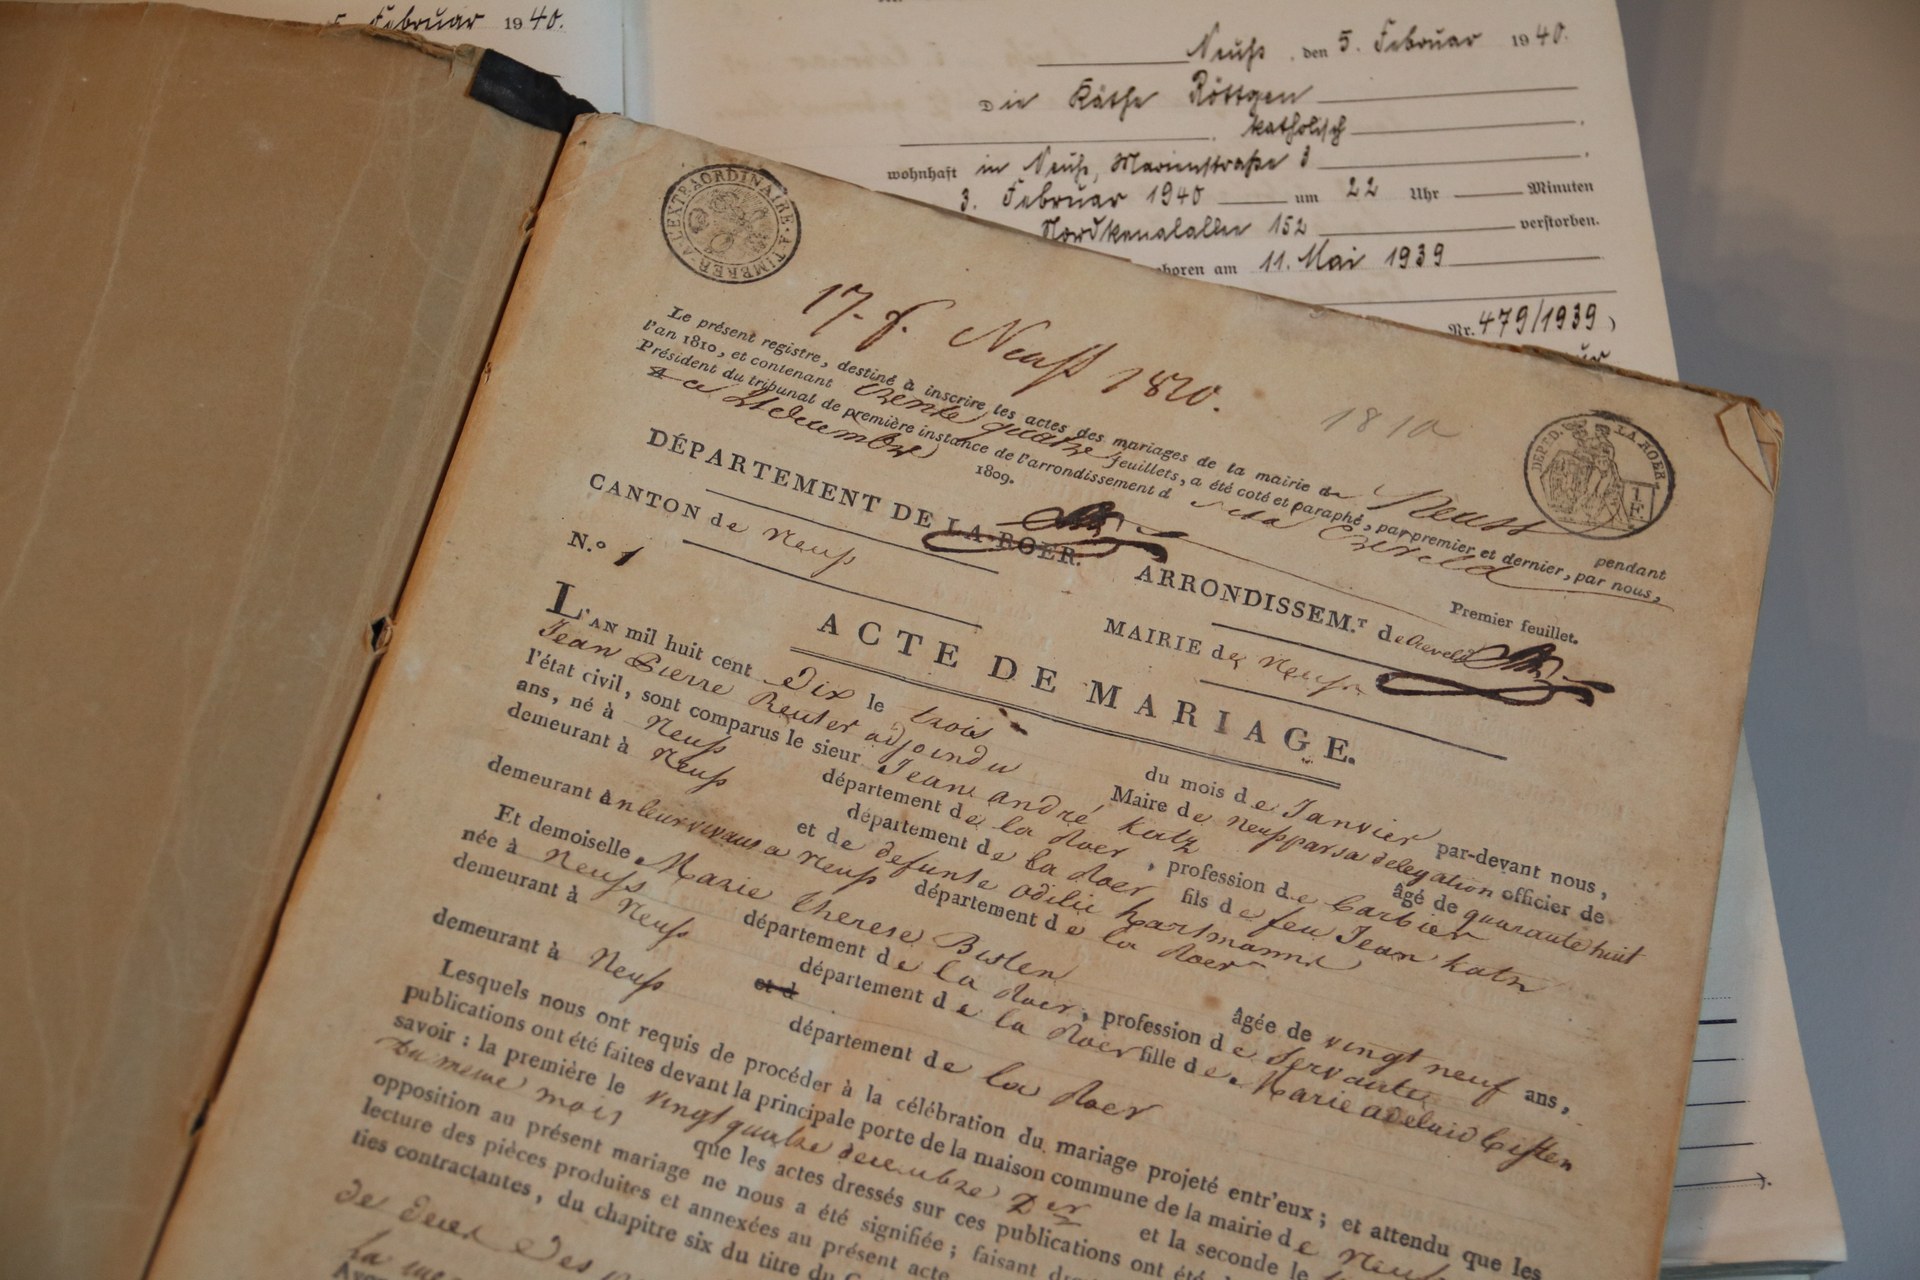 Februar 1940.
Neuß, den 5. Februar 1940.
Die Käthe Röttgen
katholisch
wohnhaft in Neuß, Marienstraße 8
3. Februar 1940 um 22 Uhr Minuten
Nordkanalallee 152 verstorben.
boren am 11. Mai 1939
Nr. 479/1939)
TIMBRE A L'EXTRAORDINAIRE
17. f. Neuss 1810.
1810
DEP. D. LA ROER
1 F.
Le présent registre, destiné à inscrire les actes des mariages de la mairie de Neuss pendant
l'an 1810, et contenant trente quatre feuillets, a été coté et paraphé, par premier et dernier, par nous,
Président du tribunal de première instance de l'arrondissement d Creveld
ce 21 decembre 1809.
Premier feuillet.
DÉPARTEMENT DE LA ROER. ARRONDISSEM.T de Creveld
CANTON de Neuss MAIRIE de Neuss
N.o 1
ACTE DE MARIAGE.
L'AN mil huit cent Dix le trois du mois de Janvier par-devant nous,
Jean Pierre Reuter adjoindu Maire de Neuss par sa delegation officier de
l'état civil, sont comparus le sieur Jean andré Katz âgé de quarante huit
ans, né à Neuss département de la Roer, profession de barbier
demeurant à Neuss département de la Roer fils de feu Jean Katz
et de defunte odilie hartmanns
demeurant en leur vivant a Neuss département de la Roer
Et demoiselle Marie therese Busten âgée de vingt neuf ans,
née à Neuss département de la Roer, profession de Servante
demeurant à Neuss département de la Roer fille de Marie adelaid
et d
demeurant à Neuss département de la Roer
Lesquels nous ont requis de procéder à la célébration du mariage projeté entr'eux; et attendu que les
publications ont été faites devant la principale porte de la maison commune de la mairie de Neuss
savoir : la première le vingt quatre decembre et la seconde le
du meme mois que les actes dressés sur ces publications ont été
opposition au présent mariage ne nous a été signifiée; faisant
lecture des pièces produites et annexées au présent acte
ties contractantes, du chapitre six du titre du
de des
la